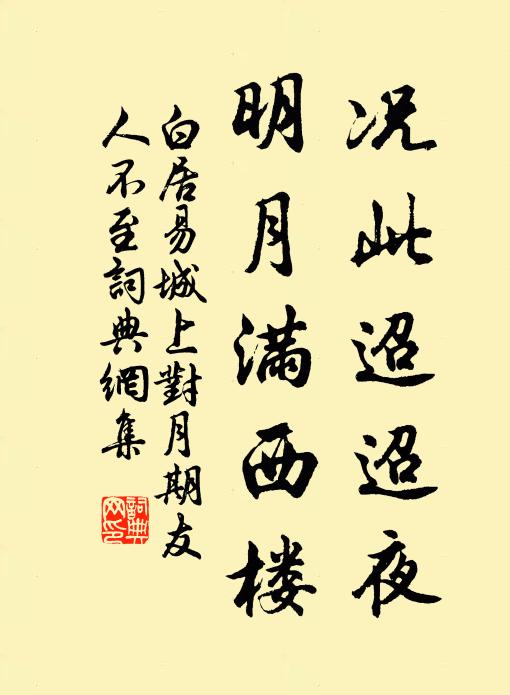 况此迢迢夜
明月满西楼
白居易城上對月期友
人不至詞典網集
詞典
网印